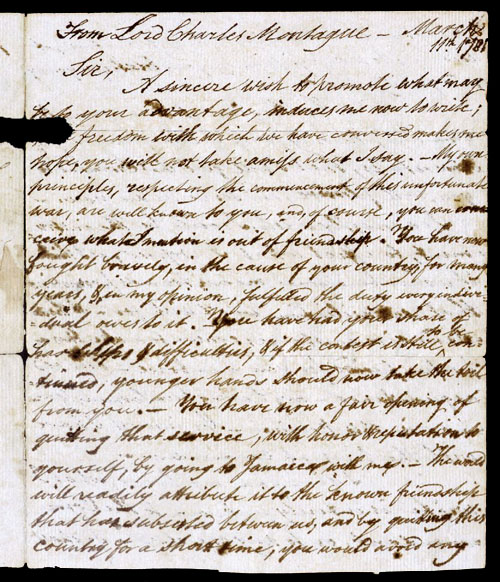 From Lord Charles Montague – March
11th 1781
Sir,
A sincere wish to promote what may
be to your advantage, induces me now to write;
freedom with which we have conversed makes me
hope, you will not take amiss what I say. – My own
principles, respecting the commencement of this unfortunate
war, are well known to you, and, of course, you can con-
ceive what I mention is out of friendship. You have now
fought bravely, in the cause of your country, for many
years, &, in my opinion, fulfilled the duty every indivi-
-dual owes to it. You have had your share of
hardships & difficulties, & if the contest is still to be con-
tinued, younger hands should now take the toil
from you. – You have now a fair opening of
quitting that service, with honor & reputation to
yourself, by going to Jamaica with me. – The world
will readily attribute it to the known friendship
that has subsisted between us, and by quitting this
country for a short time, you would avoid any